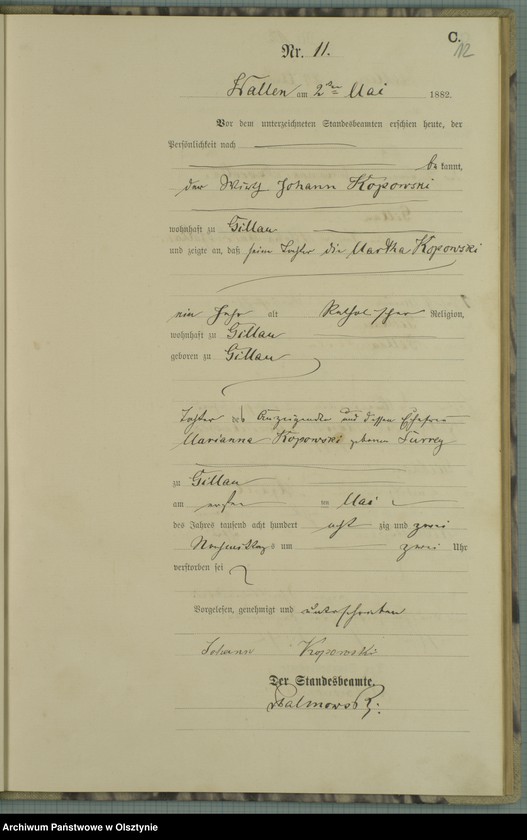 C.
12
Nr. 11.
Wallen am 2ten Mai 1882.
Vor dem unterzeichneten Standesbeamten erschien heute, der
Persönlichkeit nach
bekannt,
der Wirth Johann Kopowski
wohnhaft zu Gillau
und zeigte an, daß seine Tochter die Martha Kopowski
ein Jahr alt Katholischer Religion,
wohnhaft zu Gillau
geboren zu Gillau
Tochter des Anzeigenden und dessen Ehefrau
Marianna Kopowski geboren
zu Gillau
am ersten im Mai
des Jahres tausend acht hundert achtzig und zwei
Nachmittags um zwei Uhr
verstorben sei
Vorgelesen, genehmigt und unterschrieben
Johann Kopowski
Der Standesbeamte.
Archiwum Państwowe w Olsztynie